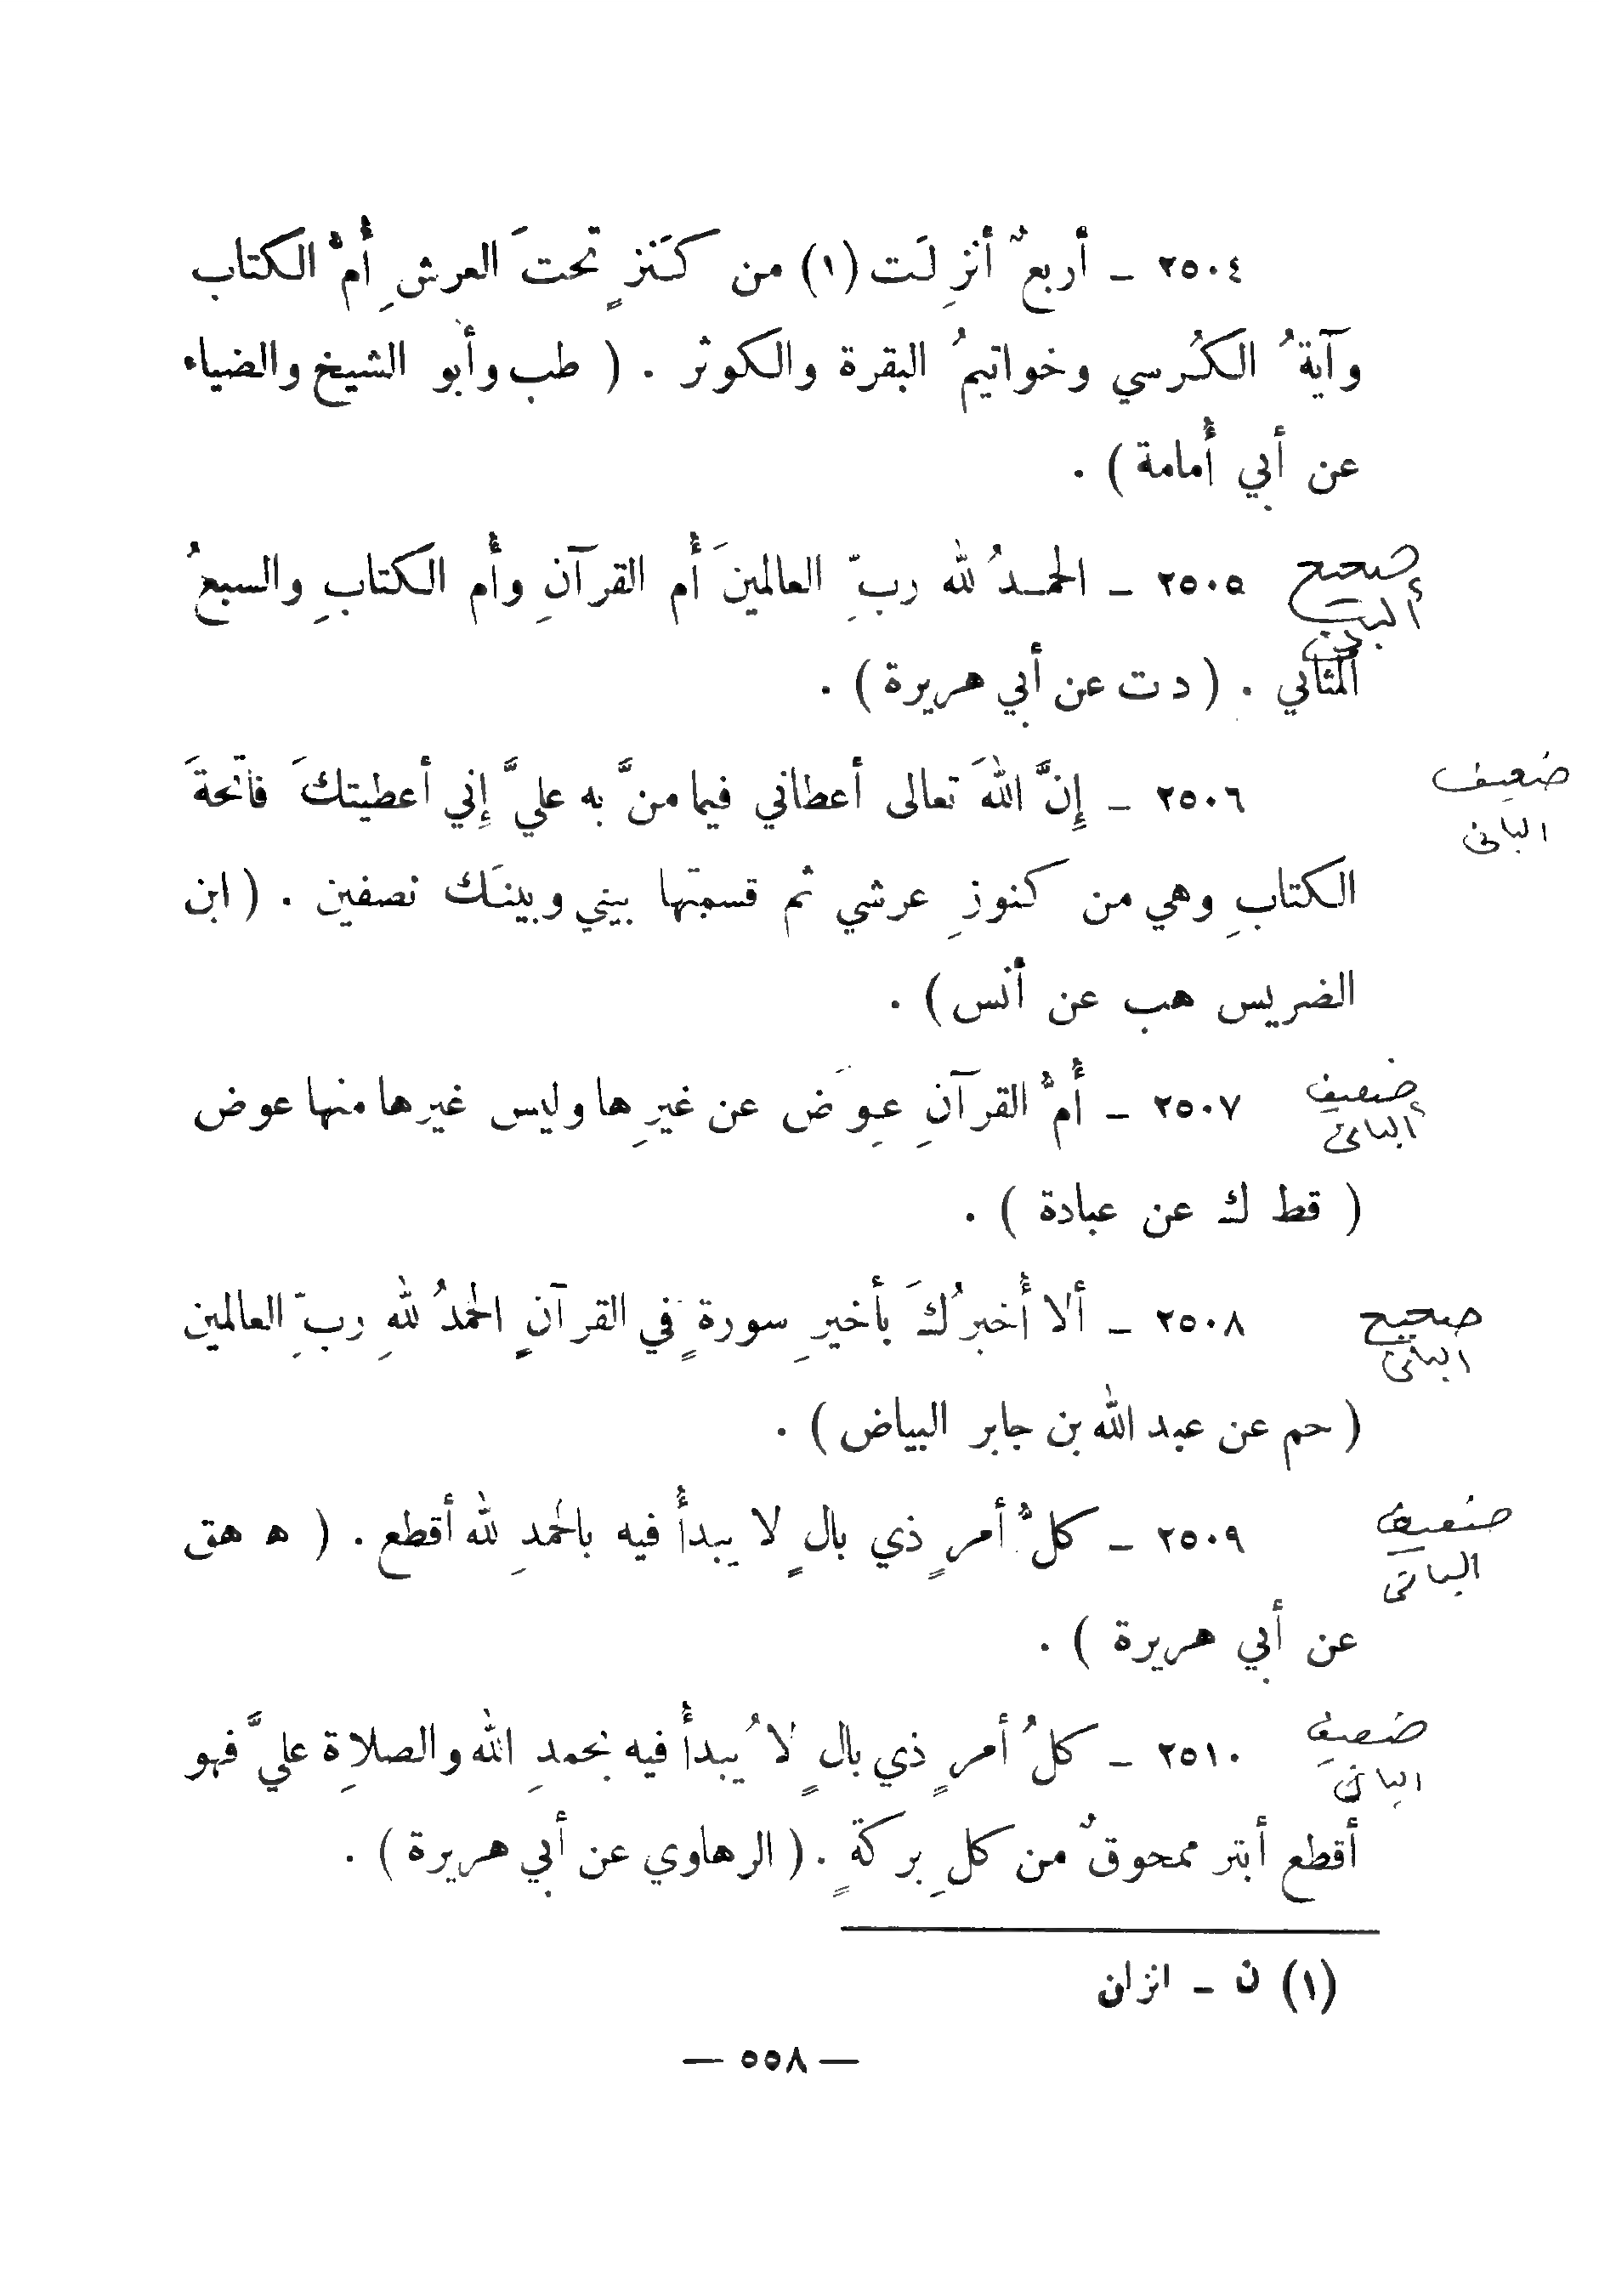 ٢٥٠٤ ـ أربعٌ أنزِلَت (١) من كَنزٍ تحتَ العرشِ أُمُّ الكتاب
وآيةُ الكُرسي وخواتيمُ البقرة والكوثر . ( طب وأبو الشيخ والضياء
عن أبي أُمامة ) .
صحيح
ألباني
٢٥٠٥ ـ الحمدُ لله ربِّ العالمينَ أُم القرآنِ وأُم الكتابِ والسبعُ
المثاني . ( د ت عن أبي هريرة ) .
ضعيف
البانى
٢٥٠٦ ـ إِنَّ اللهَ تعالى أعطاني فيما منَّ به عليَّ إِني أعطيتكَ فاتحةَ
الكتابِ وهي من كنوزِ عرشي ثم قسمتها بيني وبينَك نصفين . ( ابن
الضريس هب عن أنس ) .
ضعيف
ألبانى
٢٥٠٧ ـ أُمُّ القرآنِ عِوَض عن غيرِها وليس غيرها منها عوض
( قط ك عن عبادة ) .
صحيح
البانى
٢٥٠٨ ـ ألا أُخبرُكَ بأخيرِ سورةٍ في القرآنِ الحمدُ للهِ ربِّ العالمين
( حم عن عبد الله بن جابر البياض ) .
ضعيف
البانى
٢٥٠٩ ـ كلُّ أمرٍ ذي بالٍ لا يبدأُ فيه بالحمدِ لله أقطع . ( ه هق
عن أبي هريرة ) .
ضعيف
البانى
٢٥١٠ ـ كلُ أمرٍ ذي بالٍ لا يُبدأُ فيه بحمدِ الله والصلاةِ عليَّ فهو
أقطع أبتر ممحوقٌ من كلِ بركةٍ . ( الرهاوي عن أبي هريرة ) .
(١) ن ـ انزلن
— ٥٥٨ —